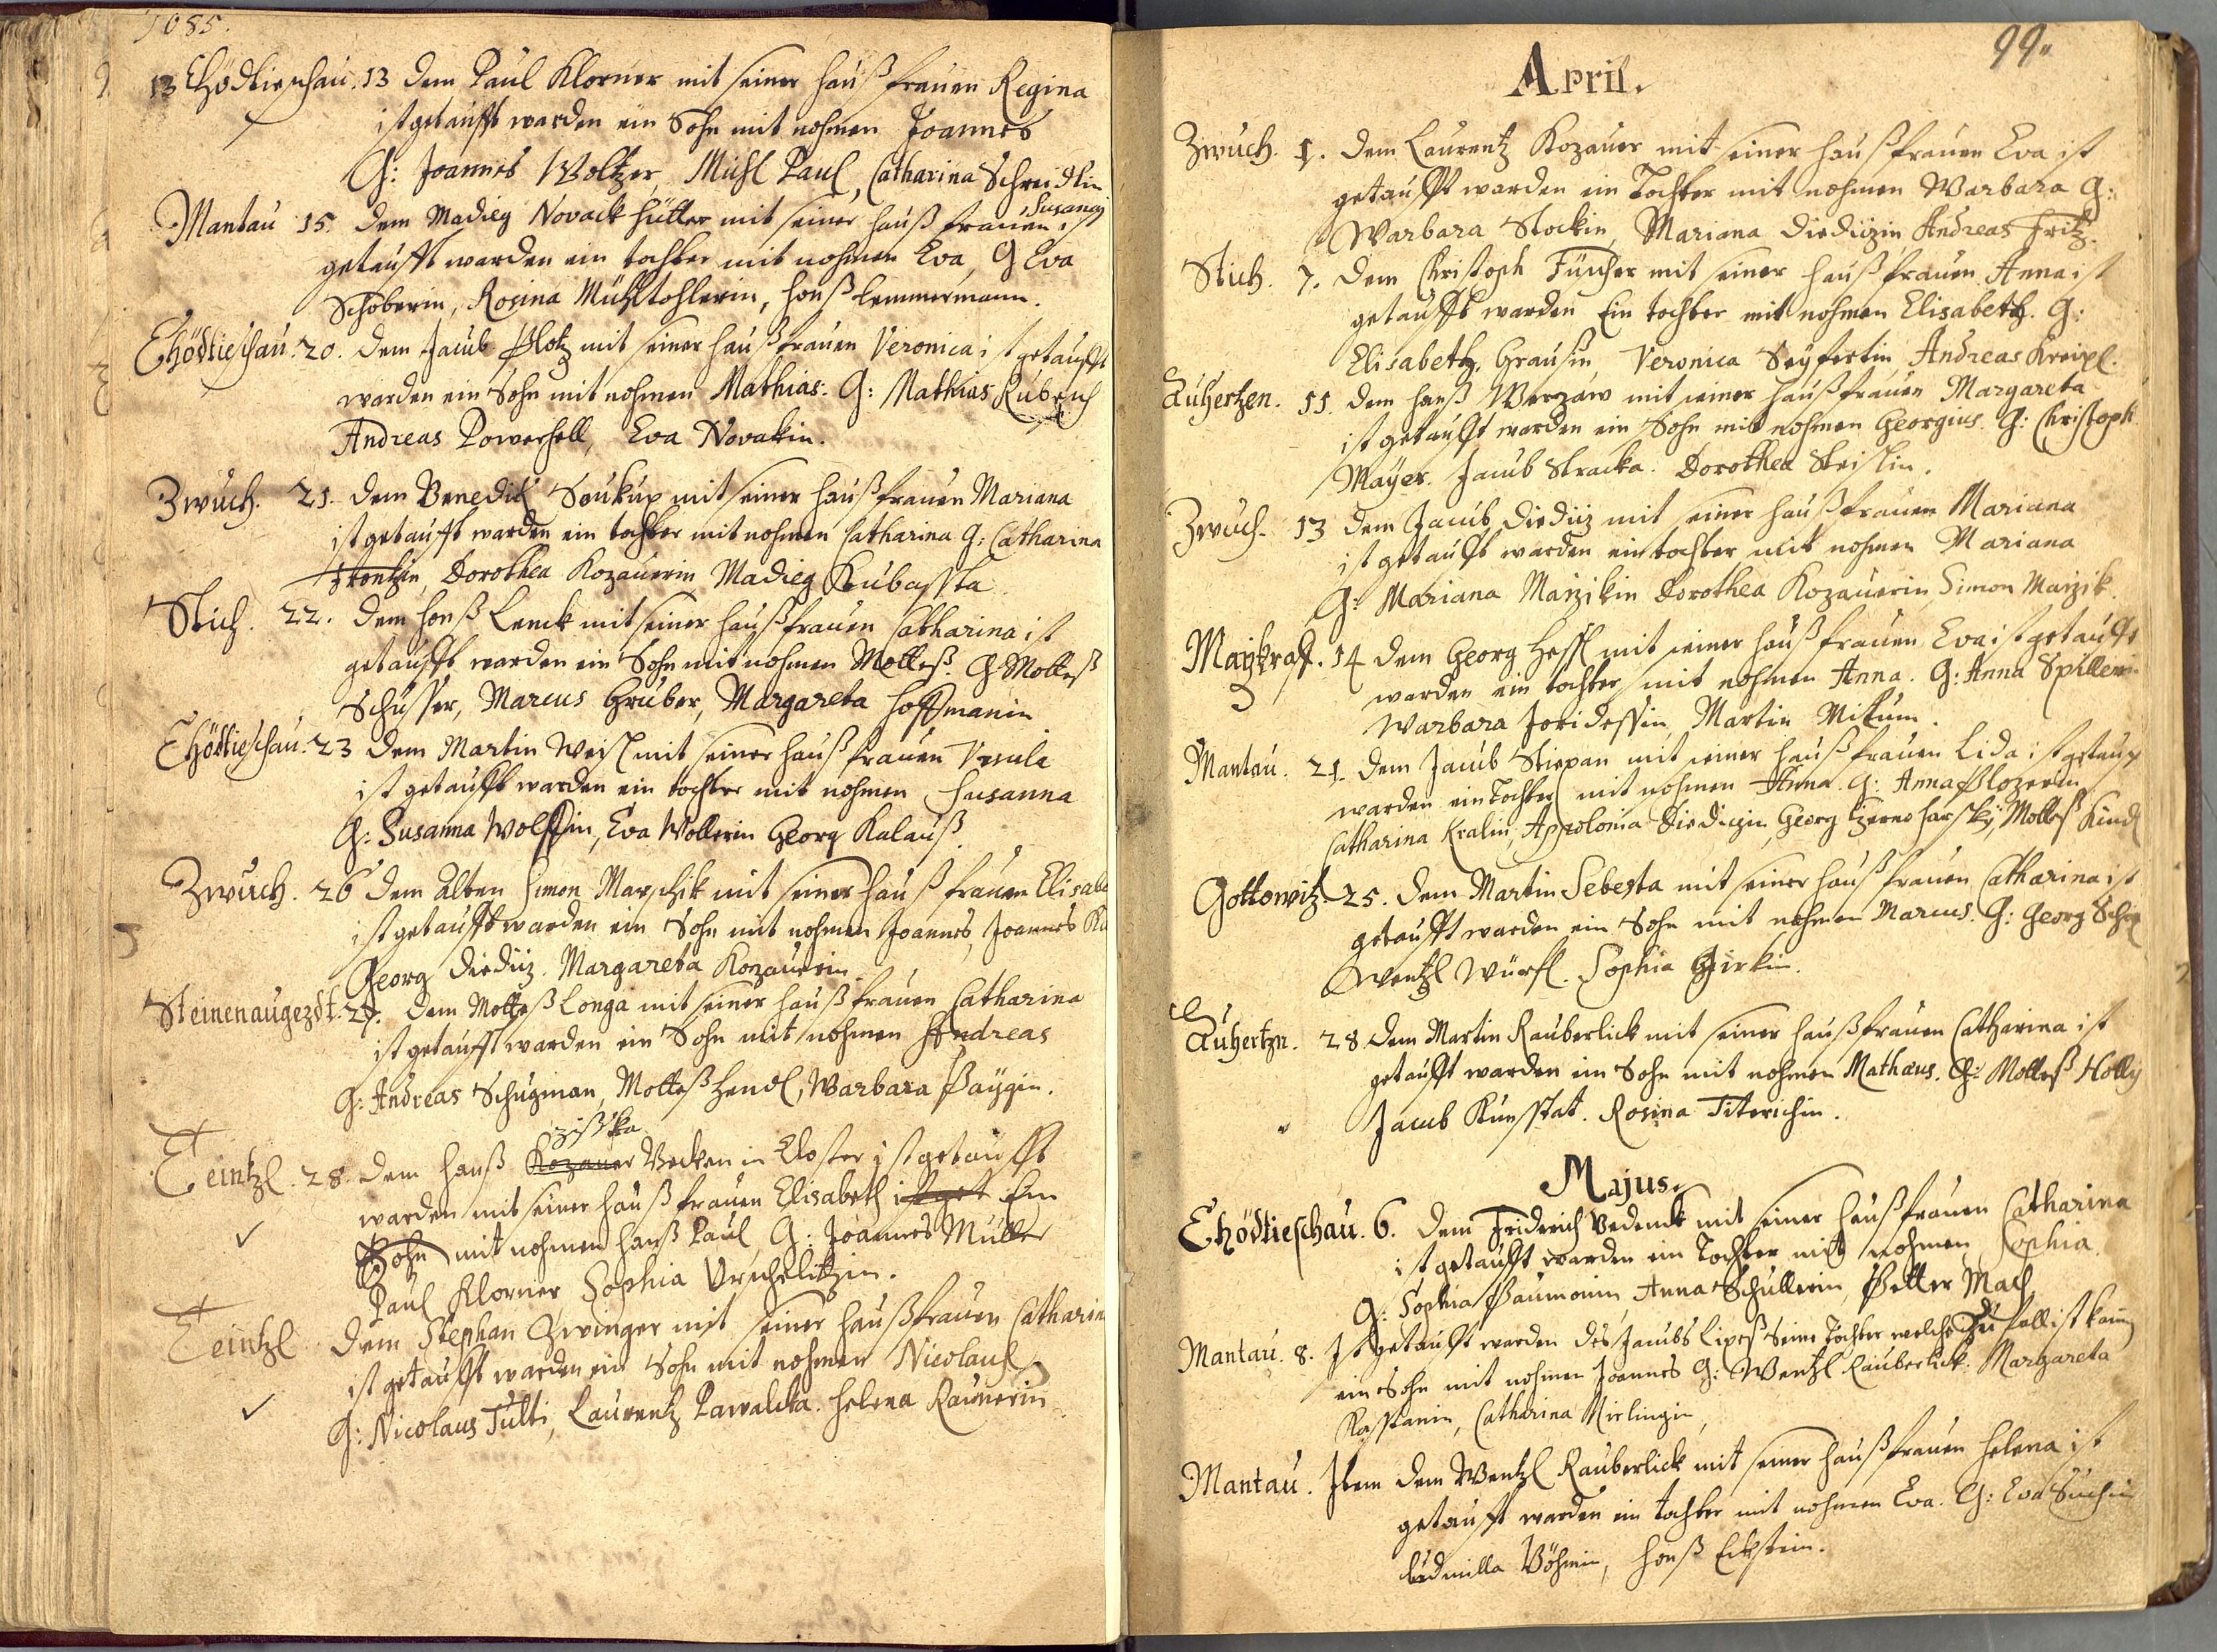 1685.
13 Chödtieschau. 13 dem Paul Klorner mit seiner haußfrauen Regina
ist getaufft warden ein Sohn mit nohmen Joannes
G: Joannes Woltzer, Michl Paul, Catharina Schreidlin
Susana
Mantau 15. dem Madieg Novack hütter mit seiner haußfrauen ist
getaufft warden ein tochter mit nohmen Eva, G Eva
Schoberin, Rosina Mühltohlerin, honß Lemmermann.
Chödtieschau. 20. dem Jacub Plotz mit seiner haußfrauen Veronica ist getaufft
warden ein Sohn mit nohmen Mathias. G: Mathias
Andreas Powerhell, Eva Novakin.
Zwuch. 21. dem Benedik Soukup mit seiner haußfrauen Mariana
ist getaufft warden ein tochter mit nohmen Catharina G: Catharina
Dorothea Kozauerin Madieg Kubassta
Stich. 22. dem honß Lenck mit seiner haußfrauen Catharina ist
getaufft warden ein Sohn mit nohmen Motteß. G Motteß
Schusser, Marcus Gruber, Margareta Hoffmanin
Chödtieschau. 23 dem Martin Weisl mit seiner haußfrauen Vrsula
ist getaufft warden ein tochter mit nohmen Susanna
G: Susanna Wolffin, Eva Wollerin Georg Kalauß.
Zwuch. 26 dem alten Simon Marschik mit seiner haußfrauen Elisabe
ist getaufft warden ein Sohn mit nohmen Joannes, Joannes
Georg Diediiz. Margareta Kozauerin.
Steinenaugezdt. 27. dem Motteß Longa mit seiner haußfrauen Catharina
ist getaufft warden ein Sohn mit nohmen Andreas
G: Andreas Schugman, Motteß Hendl, Warbara Paygin.
zisska
Teintzl. 28. dem hanß Kozauer Becken in Closter ist getaufft
warden mit seiner haußfrauen Elisabeth ist get Ein
Sohn mit nohmen hanß Paul, G: Joannes Müller
Paul Klorner Sophia Urschelitzin.
Teintzl dem Stephan Zwinger mit seiner haußfrauen Catharin
ist getaufft warden ein Sohn mit nohmen Nicolaus
G: Nicolaus Tulti, Laurentz Pawalcka. Helena Raunerin
99.
April.
Zwuch. 1. dem Laurentz Kozauer mit seiner haußfrauen Eva ist
getaufft warden ein Tochter mit nohmen Warbara G:
Warbara Stockin, Mariana Diediizin Andreas Fritz.
Stich. 7. dem Christoph Fürcher mit seiner haußfrauen Anna ist
getaufft warden Ein tochter mit nohmen Elisabeth. G:
Elisabeth, Grausin, Veronica Seyfertin, Andreas Kreipl.
Auhertzen. 11. dem hanß Werzaw mit seiner haußfrauen Margareta
ist getaufft warden ein Sohn mit nohmen Georgius. G: Christoph
Mayer. Jacub Stracka. Dorothea Steislin.
Zwuch. 13 dem Jacub Diediiz mit seiner haußfrauen Mariana
ist getaufft warden ein tochter mit nohmen Mariana
G: Mariana Marzikin Dorothea Kozauerin, Simon Marzik.
14 dem Georg Hessl mit seiner haußfrauen Eva ist getaufft
warden ein tochter mit nohmen Anna. G: Anna Spillerin
Warbara Martin Mikum.
Mantau. 21. dem Jacub Stiepan mit seiner haußfrauen Lida ist getauf
warden ein Tochter mit nohmen Anna. G: Anna Plozerin
Catharina Kralin, Appolonia Diedizin, Georg Motteß Kindl
Gottowitz. 25. dem Martin Sebesta mit seiner haußfrauen Catharina ist
getaufft warden ein Sohn mit nohmen Marcus. G: Georg
Wentzl Würfl. Sophia Girkin.
Auhertzn. 28 dem Martin Rauberlick mit seiner haußfrauen Catharina ist
getaufft warden ein Sohn mit nohmen Mathæus. G: Motteß Holly
Jacub Kunstat. Rosina Titerichin.
Majus.
Chödtieschau. 6. dem Friderich Vedenck mit seiner haußfrauen Catharina
ist getaufft warden ein Tochter mit nohmen Sophia
G: Sophia Paumonin Anna Schullerin, Petter Mach
Mantau. 8. Ist getaufft warden des Jacubs Lipeß seine Tochter welche zu fall ist kom̄
ein Sohn mit nohmen Joannes G: Wentzl Rauberlick. Margareta
Kasstanin, Catharina Mirlingin,
Mantau. Item dem Wentzl Rauberlick mit seiner haußfrauen Helena ist
getaufft warden ein tochter mit nohmen Eva. G: Eva Suchin
Ludmilla Böhmin, honß Eckstein.